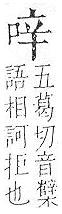 五葛切音櫱
語相訶拒也